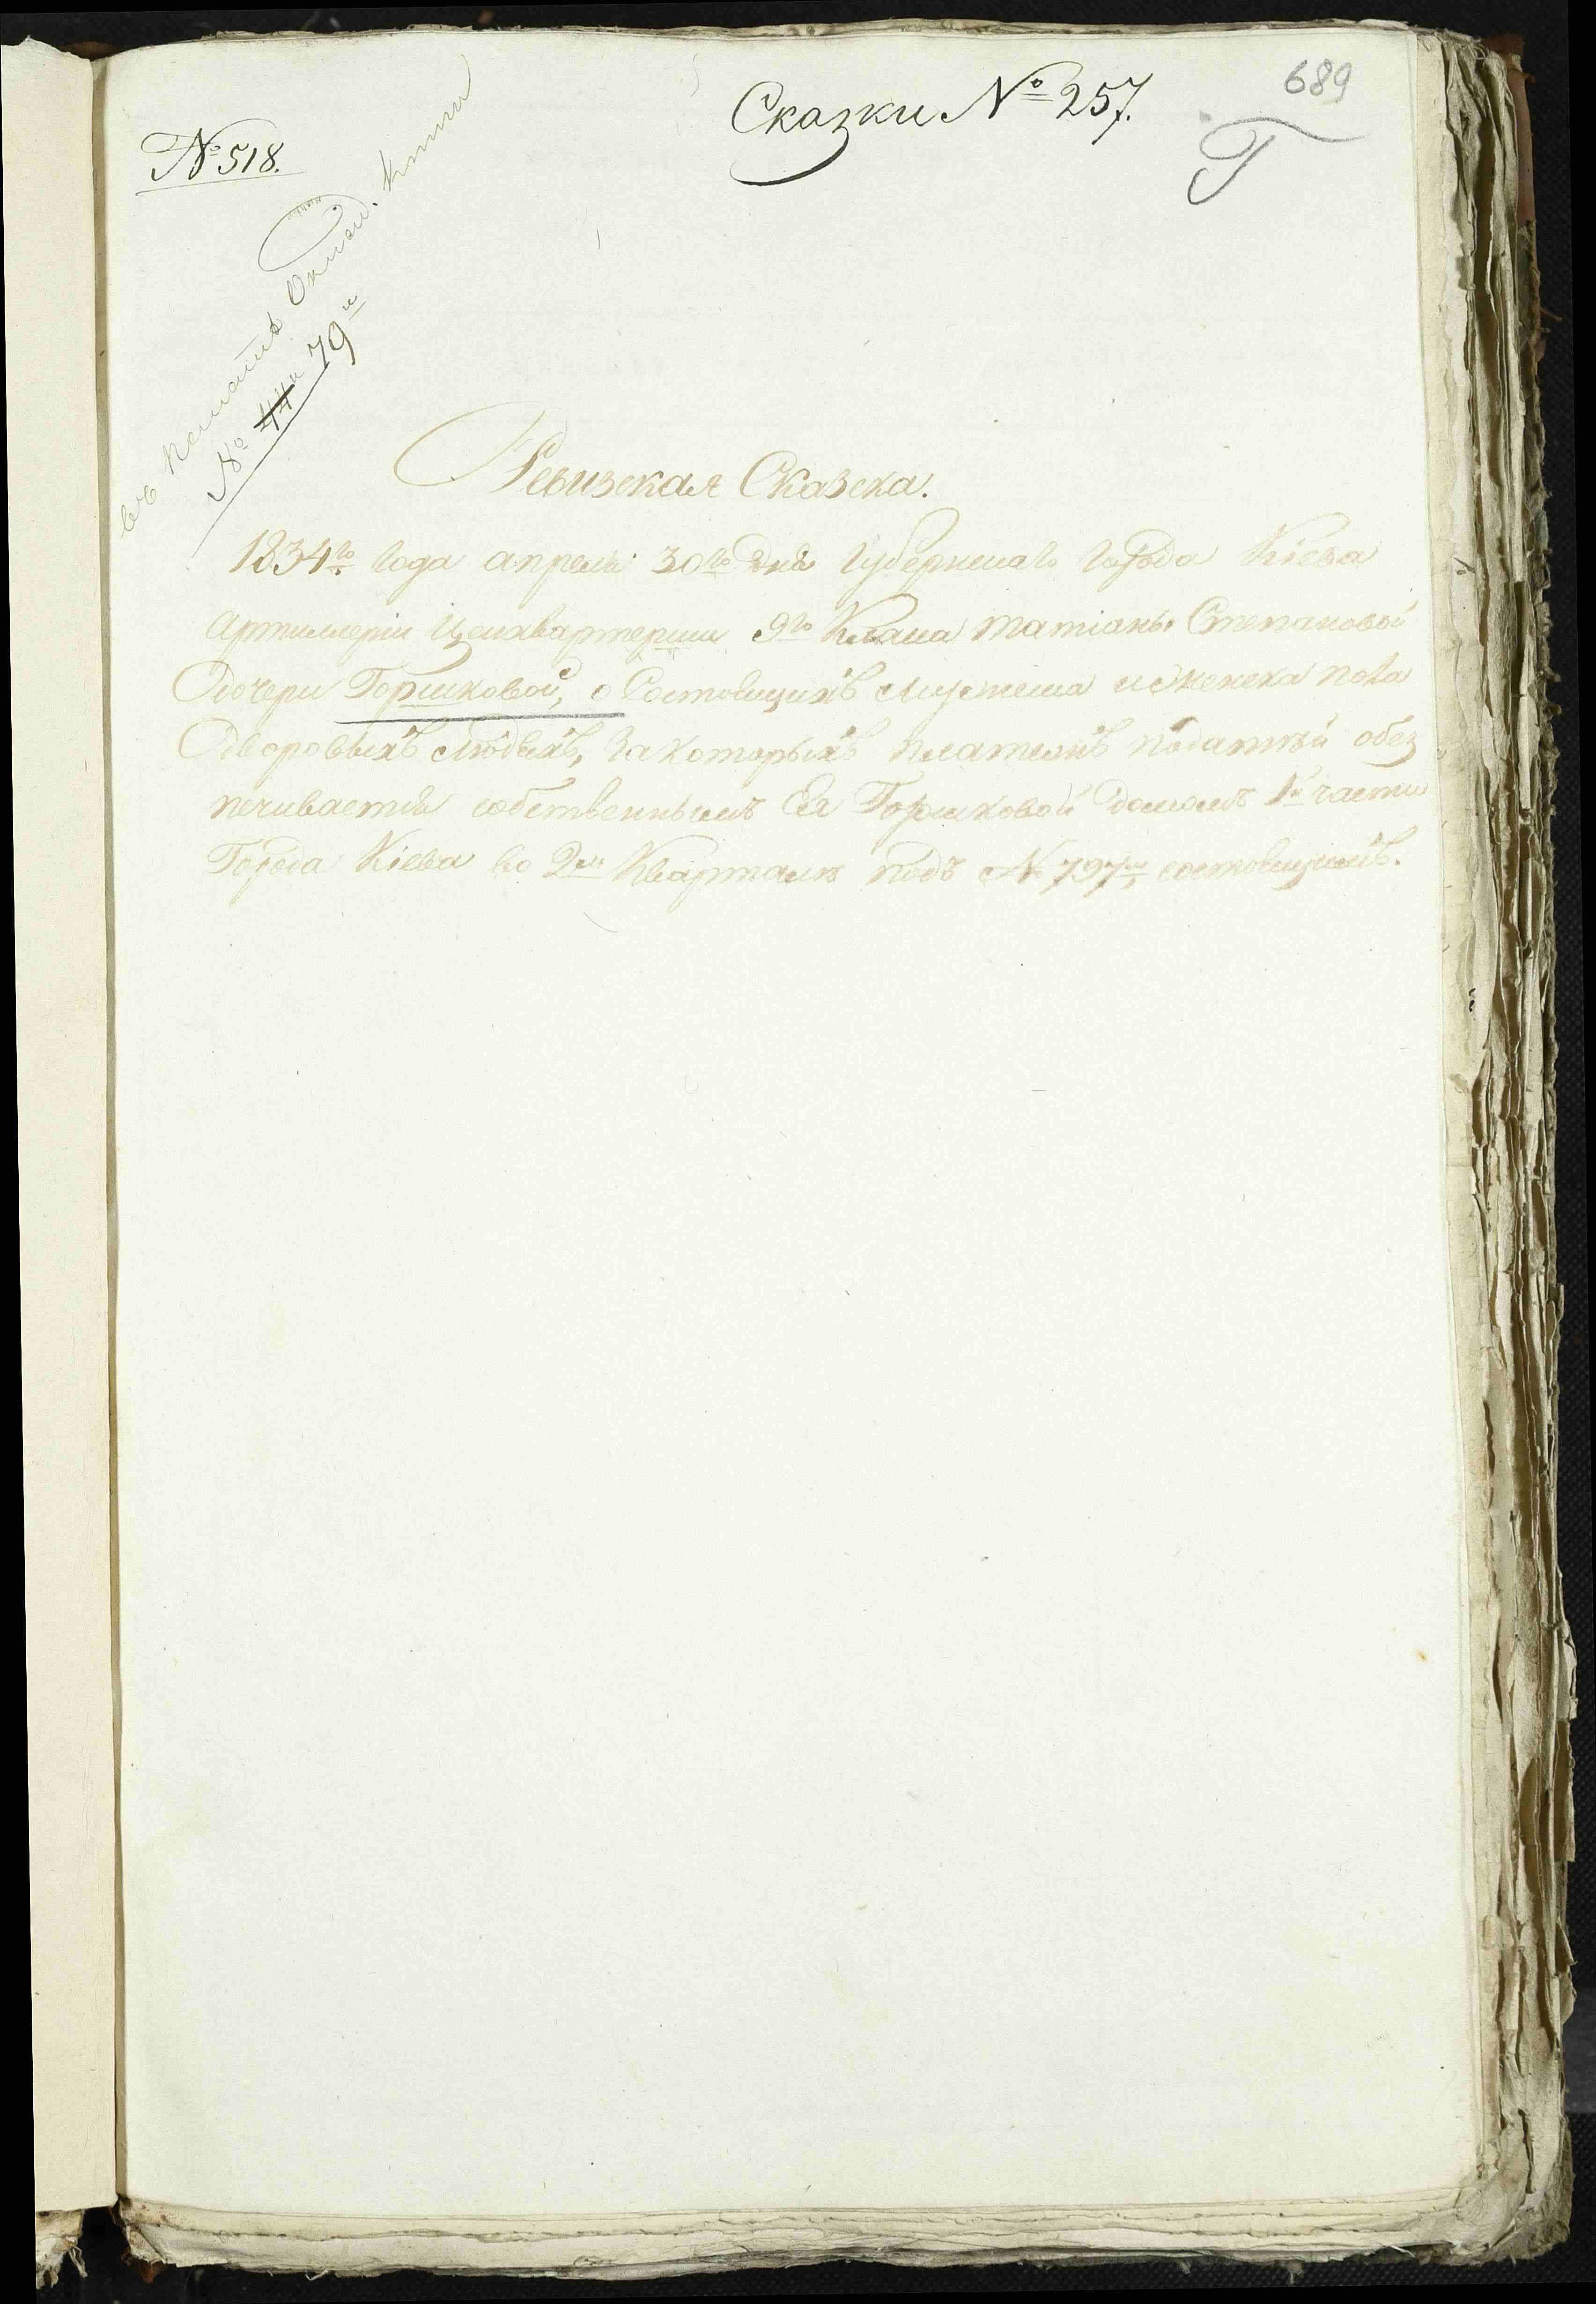 689
Сказки № 257.
Г
№ 518.
въ Оклад. книги
№ 44й 79й
Ревизская Сказска.
1834го года апреля 30го дня Губернскаго Города Кіева
Артиллеріи Цейхвартерши 9го Класа Татіаны Степановой
Дочери Горшковой, о Состоящихъ мужеска и женска пола
Дворовыхъ людяхъ, за которыхъ платежъ податей обез
печивается собственнымъ Ея Горшковой домомъ 1й части
Города Кіева во 2мъ Кварталѣ подъ № 797мъ, состоящимъ.